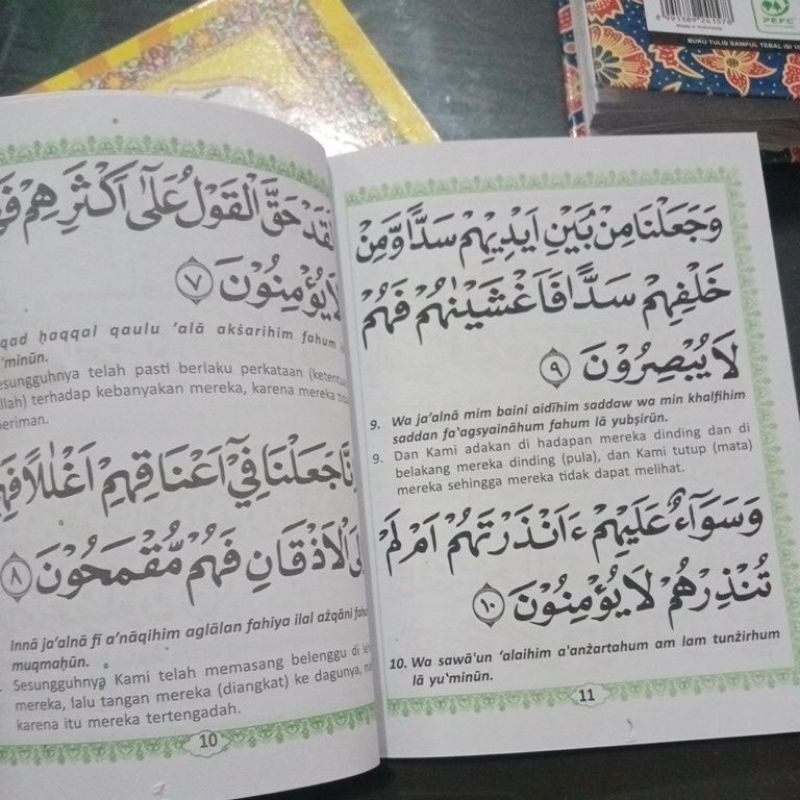 8991389241578
Made in Indonesia
PEFC
BUKU TULIS SAMPUL TEBAL ISI
لَقَدْ حَقَّ الْقَوْلُ عَلٰٓى اَكْثَرِهِمْ
لَا يُؤْمِنُوْنَ ٧
qad ḥaqqal qaulu 'alā akṡarihim fahum
'minūn.
esungguhnya telah pasti berlaku perkataan
llah) terhadap kebanyakan mereka, karena mereka
eriman.
اِنَّا جَعَلْنَا فِيْٓ اَعْنَاقِهِمْ اَغْلٰلًا
الْاَذْقَانِ فَهُمْ مُّقْمَحُوْنَ ٨
Innā ja'alnā fī a'nāqihim aglālan fahiya ilal ażqāni
muqmaḥūn.
Sesungguhnya Kami telah memasang belenggu di
mereka, lalu tangan mereka (diangkat) ke dagunya,
karena itu mereka tertengadah.
10
وَجَعَلْنَا مِنْۢ بَيْنِ اَيْدِيْهِمْ سَدًّا وَّمِنْ
خَلْفِهِمْ سَدًّا فَاَغْشَيْنٰهُمْ فَهُمْ
لَا يُبْصِرُوْنَ ٩
9. Wa ja'alnā mim baini aidīhim saddaw wa min khalfihim
saddan fa'agsyaināhum fahum lā yubṣirūn.
9. Dan Kami adakan di hadapan mereka dinding dan di
belakang mereka dinding (pula), dan Kami tutup (mata)
mereka sehingga mereka tidak dapat melihat.
وَسَوَآءٌ عَلَيْهِمْ ءَاَنْذَرْتَهُمْ اَمْ لَمْ
تُنْذِرْهُمْ لَا يُؤْمِنُوْنَ ١٠
10. Wa sawā'un 'alaihim a'anżartahum am lam tunżirhum
lā yu'minūn.
11